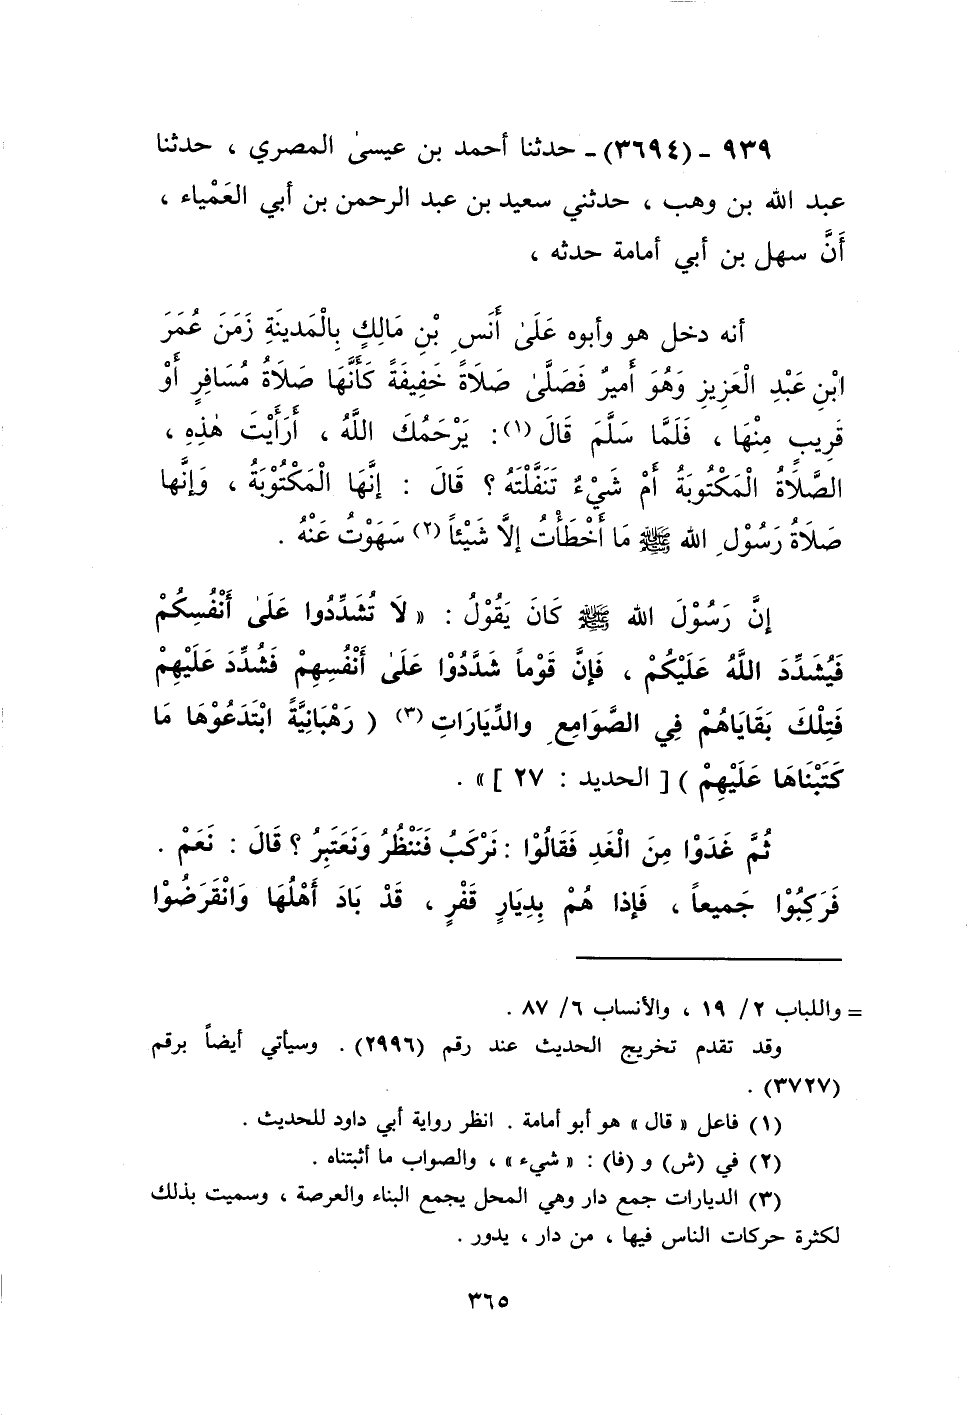 ٩٣٩ - (٣٦٩٤) - حدثنا أحمد بن عيسىٰ المصري ، حدثنا
عبد الله بن وهب ، حدثني سعيد بن عبد الرحمن بن أبي العَمْياء ،
أَنَّ سهل بن أبي أمامة حدثه ،
أنه دخل هو وأبوه عَلَىٰ أَنَسِ بْنِ مَالِكٍ بِالْمَدينَةِ زَمَنَ عُمَرَ
ابْنِ عَبْدِ الْعَزِيزِ وَهُوَ أَميرٌ فَصَلَّىٰ صَلَاةً خَفِيفَةً كَأَنَّهَا صَلَاةُ مُسَافِرٍ أَوْ
قَرِيبٍ مِنْهَا ، فَلَمَّا سَلَّمَ قَالَ (١) : يَرْحَمُكَ اللَّهُ ، أَرَأَيْتَ هٰذِهِ ،
الصَّلَاةُ الْمَكْتُوبَةُ أَمْ شَيْءٌ تَنَفَّلْتَهُ ؟ قَالَ : إنَّهَا الْمَكْتُوْبَةُ ، وَإنَّها
صَلَاةُ رَسُوْلِ الله ﷺ مَا أَخْطَأْتُ إلَّا شَيْئاً (٢) سَهَوْتُ عَنْهُ .
إنَّ رَسُوْلَ الله ﷺ كَانَ يَقُوْلُ : « لَا تُشَدِّدُوا عَلَىٰ أَنْفُسِكُمْ
فَيُشَدِّدَ اللَّهُ عَلَيْكُمْ ، فَإنَّ قَوْماً شَدَّدُوْا عَلَىٰ أَنْفُسِهِمْ فَشُدِّدَ عَلَيْهِمْ
فَتِلْكَ بَقَايَاهُمْ فِي الصَّوَامِعِ والدِّيَارَاتِ (٣) ( رَهْبَانِيَّةً ابْتَدَعُوْهَا مَا
كَتَبْنَاهَا عَلَيْهِمْ ) [ الحديد : ٢٧ ] » .
ثُمَّ غَدَوْا مِنَ الْغَدِ فَقَالُوْا : نَرْكَبُ فَنَنْظُرُ وَنَعَتَبِرُ ؟ قَالَ : نَعَمْ .
فَرَكِبُوْا جَميعاً ، فَإذا هُمْ بِدِيَارٍ قَفْرٍ ، قَدْ بَادَ أَهْلُهَا وَانْقَرَضُوْا
= واللباب ٢/ ١٩ ، والأنساب ٦/ ٨٧ .
وقد تقدم تخريج الحديث عند رقم (٢٩٩٦) . وسيأتي أيضاً برقم
(٣٧٢٧) .
(١) فاعل « قال » هو أبو أمامة . انظر رواية أبي داود للحديث .
(٢) في (ش) و (فا) : « شيء » ، والصواب ما أثبتناه .
(٣) الديارات جمع دار وهي المحل يجمع البناء والعرصة ، وسميت بذلك
لكثرة حركات الناس فيها ، من دار ، يدور .
٣٦٥